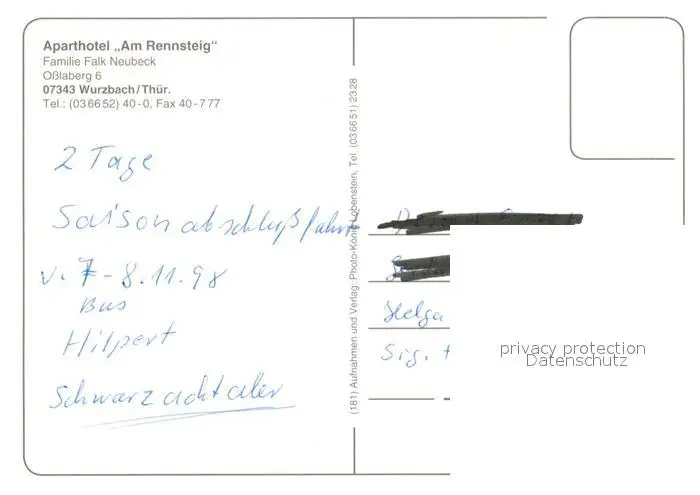 Aparthotel „Am Rennsteig“
Familie Falk Neubeck
Oßlaberg 6
07343 Wurzbach/Thür.
Tel.: (03 66 52) 40-0, Fax 40-7 77
2 Tage
Saisonabschlußfahrt
v. 7-8.11.98
Bus
Hilpert
Schwarzachtaler
(181) Aufnahmen und Verlag: Photo-König, Lobenstein, Tel. (0 36 6 51) 23 28
Helga
Sig.
privacy protection
Datenschutz